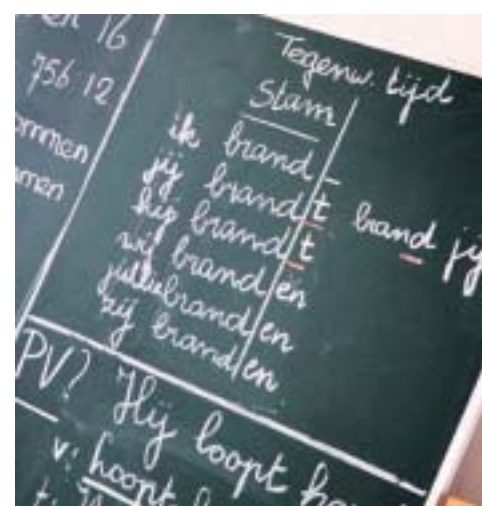 16
756:12
ommen
men
Tegenw. tijd
Stam
ik brand -
jij brand|t brand jij
hij brand|t
wij brand|en
jullie brand|en
zij brand|en
PV? Hij loopt
v: hoopt